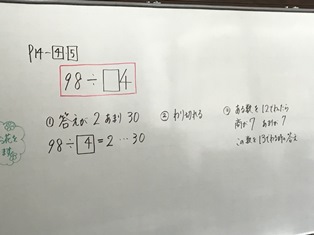 P14-4 5
98÷□4
① 答えが 2 あまり 30
98÷□4=2…30
② わり切れる
③ ある数を12でわったら
商が7 あまりが7
この数を13でわる時の答え